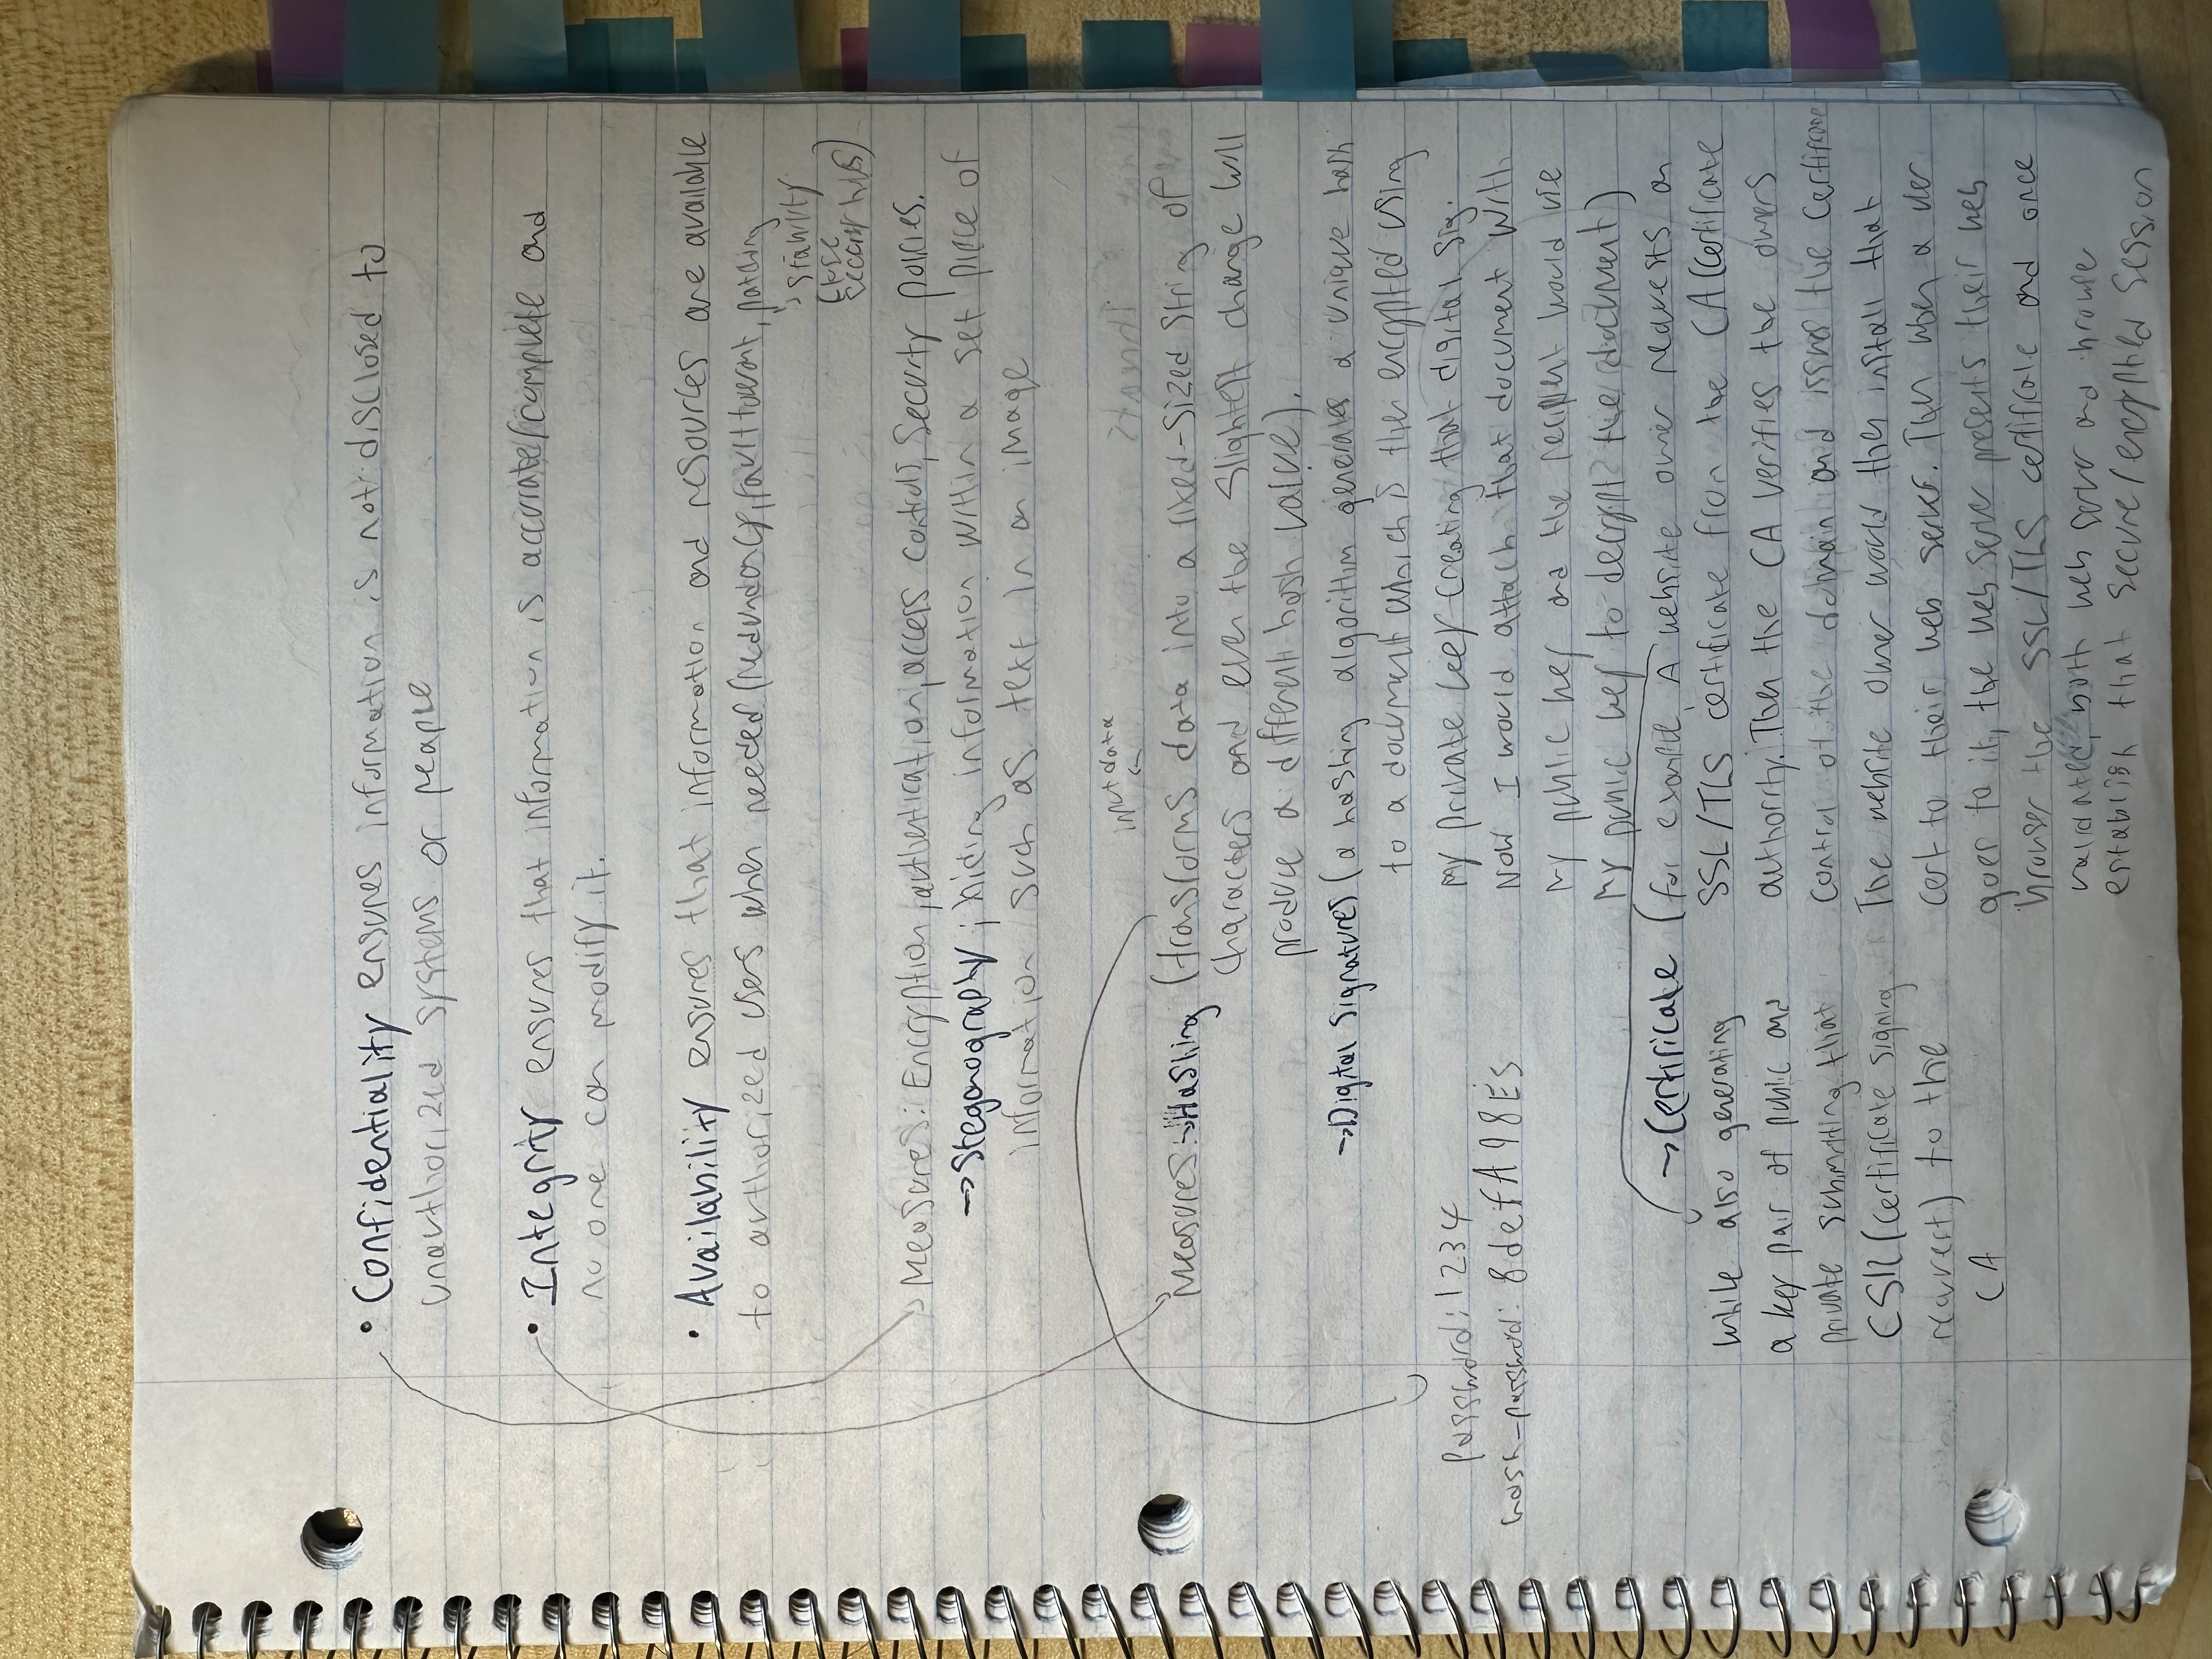 • Confidentiality ensures information is not disclosed to
unauthorized systems or people
• Integrity ensures that information is accurate/complete and
no one can modify it.
• Availability ensures that information and resources are available
to authorized users when needed (redundancy, fault tolerant, patching
→ stability
close
security holes)
Measures: Encryption, authentication, access controls, Security policies.
→ Steganography; hiding information within a set piece of
information such as text in an image
input data
Measures: → Hashing (transforms data into a fixed-sized string of
characters and even the slightest change will
produce a different hash value).
→ Digital Signatures (a hashing algorithm generates a unique hash
to a document which is then encrypted using
my private key creating that digital sig.
Now I would attach that document with
my public key and the recipient would use
my public key to decrypt the document)
Password: 1234
hash-password: 8defA98Es
→ Certificate (for example, A website owner requests an
SSL/TLS certificate from the CA (Certificate
authority. Then the CA verifies the owners
control of the domain and issues the certificate
The website owner would then install that
cert to their web server. Then when a user
goes to it, the web server presents their web
browser the SSL/TLS certificate and once
validated, both web server and browser
establish that secure/encrypted session
while also generating
a key pair of public and
private submitting that
CSR (certificate signing
request) to the
CA